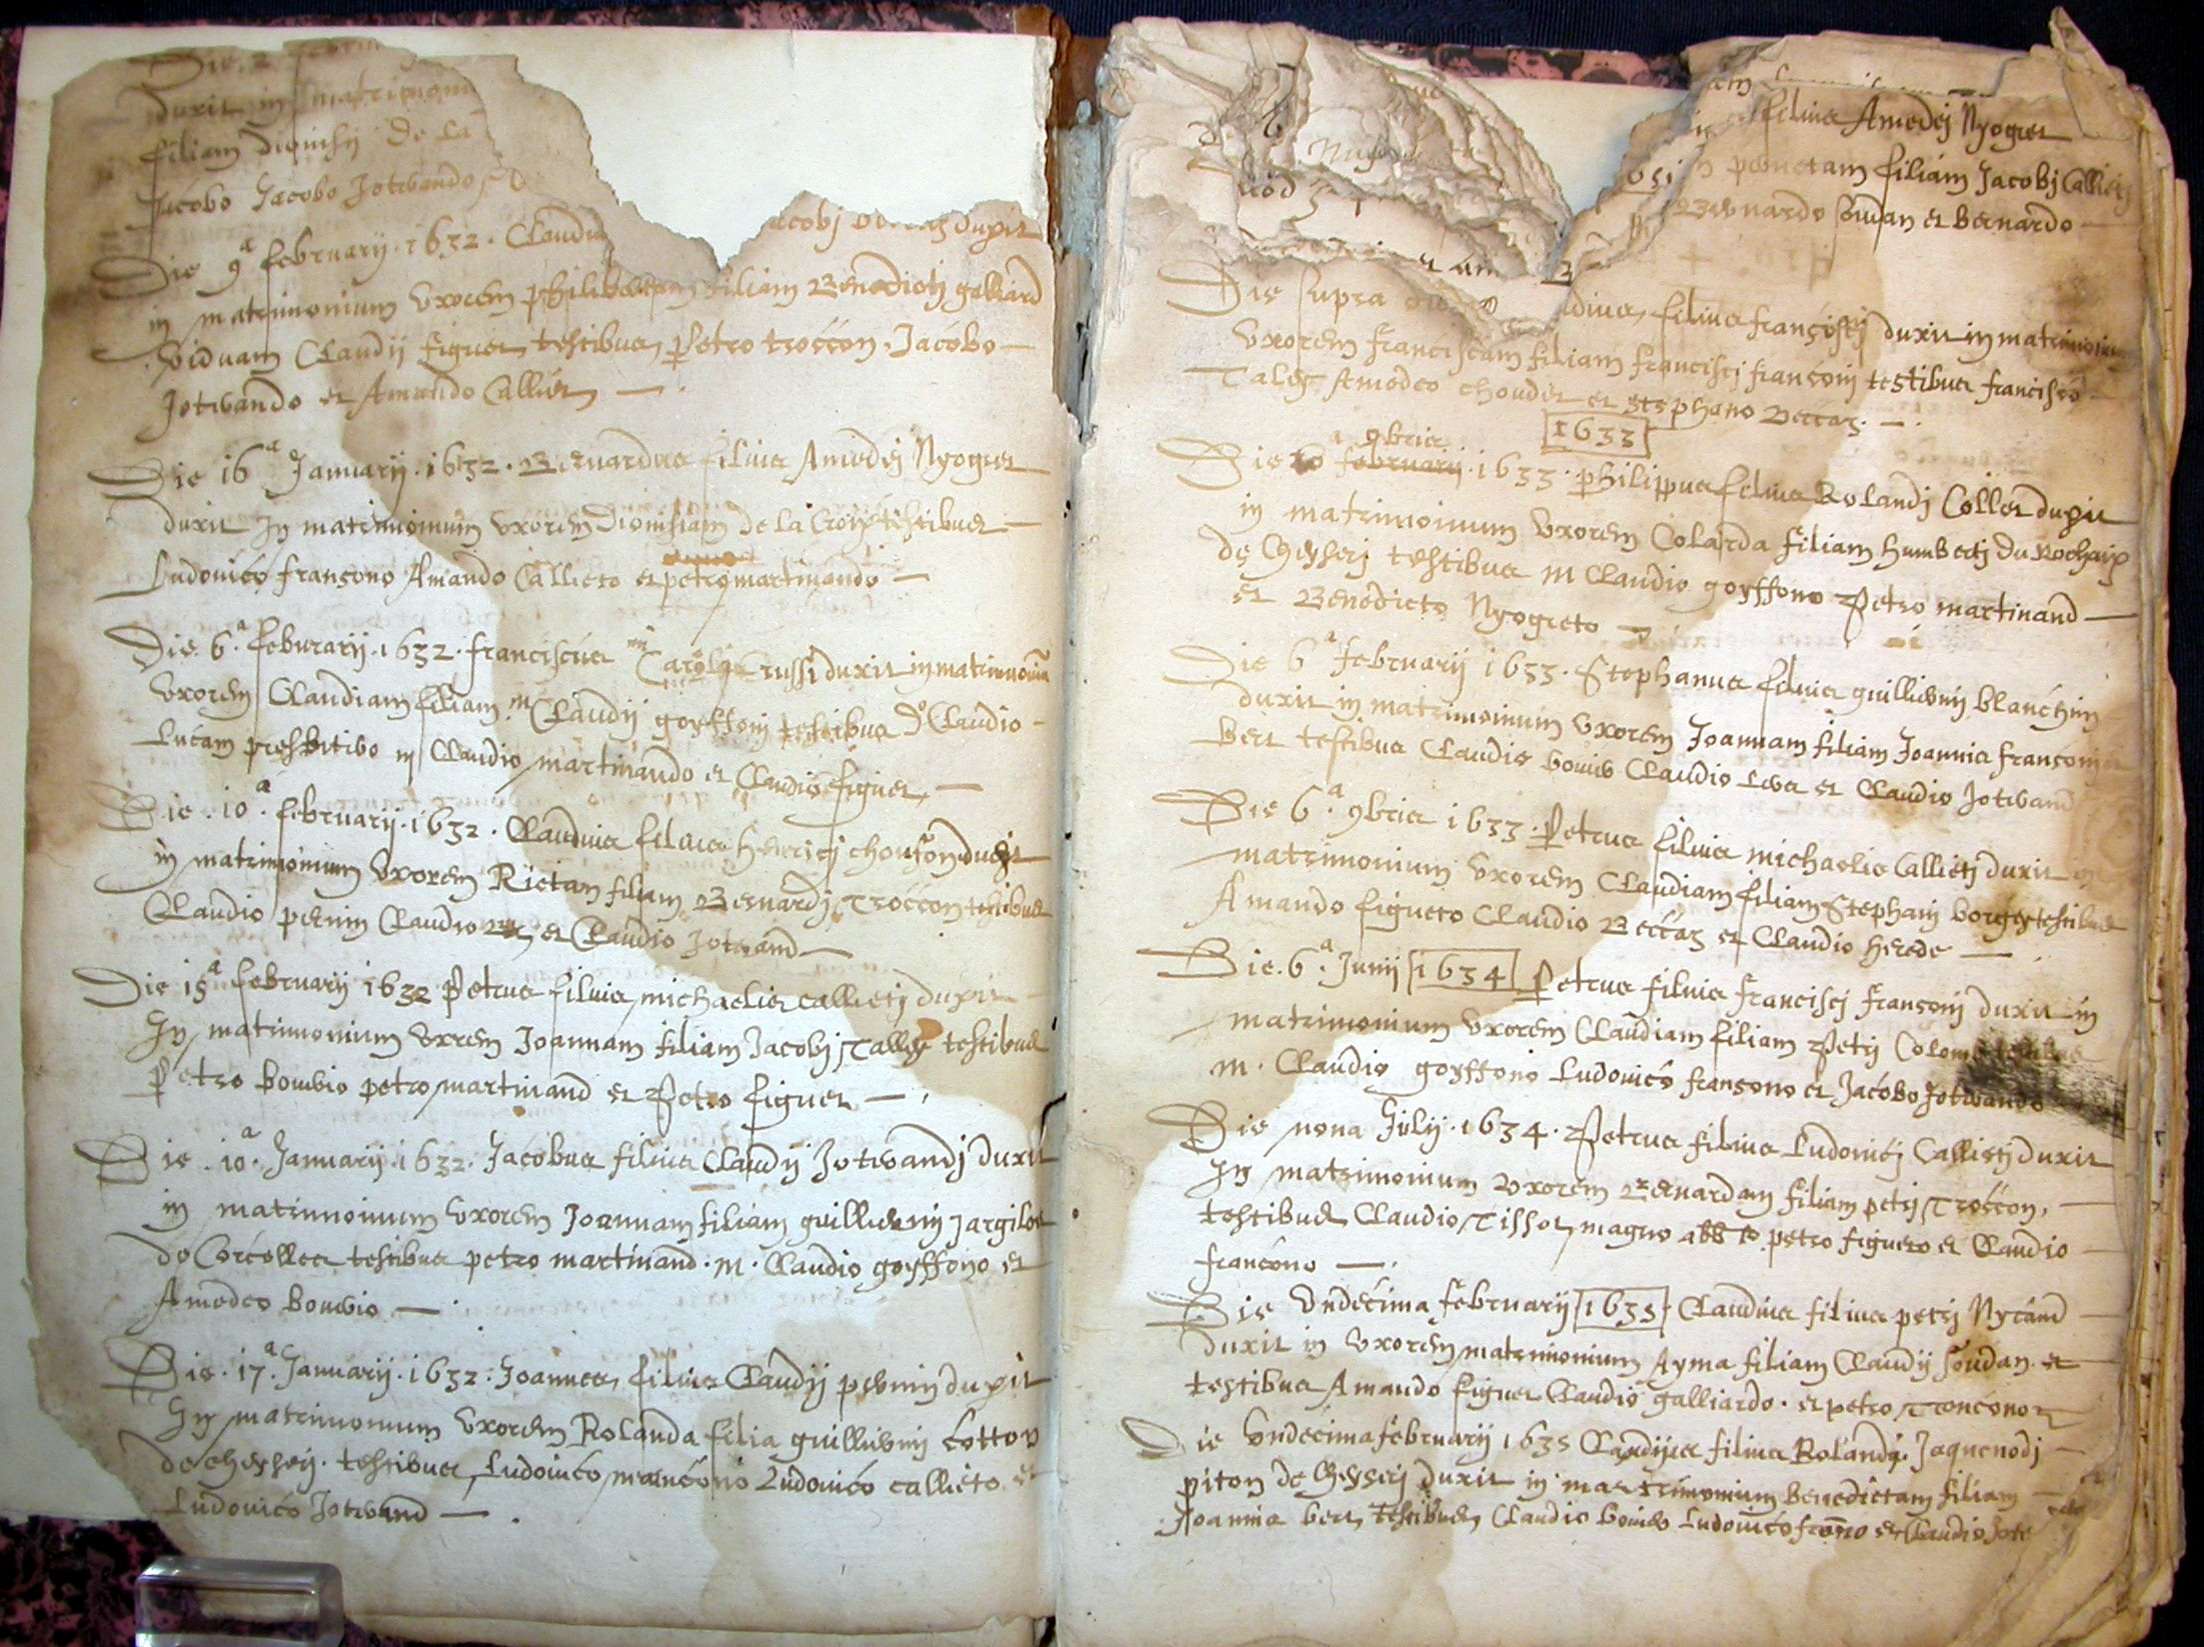 Die 2
duxit in matrimoni
filiam Dionisij De La
Jacobo Jacobo Jotvando
Die 9ª february . 1632 . Claudi acobj duxit
in matrimonium vxorem philibertam filiam Benedictj galliard
viduam Claudij figuet testibus Petro troccon . Jacobo —
Jotvando et Amando Calliet — .
Die 16ª Januarij . 1632 . Bernardus filius Amedej Nyogret
duxit In matrimonium vxorem Dionisiam de la Croix testibus —
Ludouico françono Amando Callieto et petro martinando —
Die 6ª feburarij . 1632 . franciscus m Carolj russi duxit in matrimoniu
vxorem Claudiam filiam m Claudij goyffonj testibus Do Claudio -
Lucam presbitero m Claudio martinando et Claudio figuet —
Die . 10ª . februarij . 1632 . Claudius filius Henricj choufon duxit
in matrimonium vxorem Rietam filiam Bernardj Troccon testibus
Claudio pernin Claudio et Claudio Jotvand —
Die 15ª februarij 1632 Petrus filius michaelis callietj duxit —
In matrimonium vxorem Joannam filiam Jacobj Tallez testibus
Petro bouvio petro martinand et Petro figuet — .
Die . 10ª . Januarij . 1632 . Jacobus filius Claudij Jotvandj duxit
in matrimonium vxorem Joannam filiam guillermj jargilot
de Corcelles testibus petro martinand . m . Claudio goyffono et
Amedeo bouvio — .
Die . 17ª . Januarij . 1632 : Joannes filius Claudij pernin duxit
In matrimonium vxorem Rolanda filia guillermj cotton
de cheysery . testibus Ludouico françono Ludouico callieto et
Ludouico Jotvand — .
filius Amedej Nyogret
pernetam filiam Jacobj Calliet
Bernardo soudan et Bernardo —
Die supra filius francisci duxit in matrimoniu
vxorem franciscam filiam francisci françonj testibus francisco —
Talez Amedeo choudet et stephano Beccaz . — .
1633
Die 20ª 9bris februarij . 1633 . philippus filius Rolandj Collet duxit
in matrimonium vxorem Colarda filiam humbertj du Rochaix
de cheyserj testibus m Claudio goyffono Petro martinand —
et Benedicto Nyogreto —
Die 6ª februarij 1633 . Stephanus filius guillermj blanchin
duxit in matrimonium vxorem Joannam filiam Joannis françonj
bert testibus Claudio bouvio Claudio et Claudio Jotvand
Die 6ª . 9bris 1633 . Petrus filius michaelis Callietj duxit in
matrimonium vxorem Claudiam filiam Stephanj borges testibus
Amando figueto Claudio Beccaz et Claudio Herede — .
Die . 6ª . Junij 1634 Petrus filius francisci françonj duxit in
matrimonium vxorem Claudiam filiam Petrj Colom
m . Claudio goyffono Ludouico françono et Jacobo Jotvando
Die nona Julij . 1634 . Petrus filius Ludouicj Callietj duxit
In matrimonium vxorem Bernardam filiam petrj Troccon , —
testibus Claudio Tissot magno petro figueto et Claudio —
francono — .
Die vndecima februarij 1635 . Claudius filius petrj Nycand —
duxit in vxorem matrimonium Ayma filiam Claudij soudan . et —
testibus Amando figuet Claudio galliardo . et petro
Die vndecima februarij 1635 Claudius filius Rolandj . Jaquenodj —
piton de cheyserj duxit in matrimonium benedictam filiam —
Joannis bert testibus Claudio bouvio Ludouico et Claudio